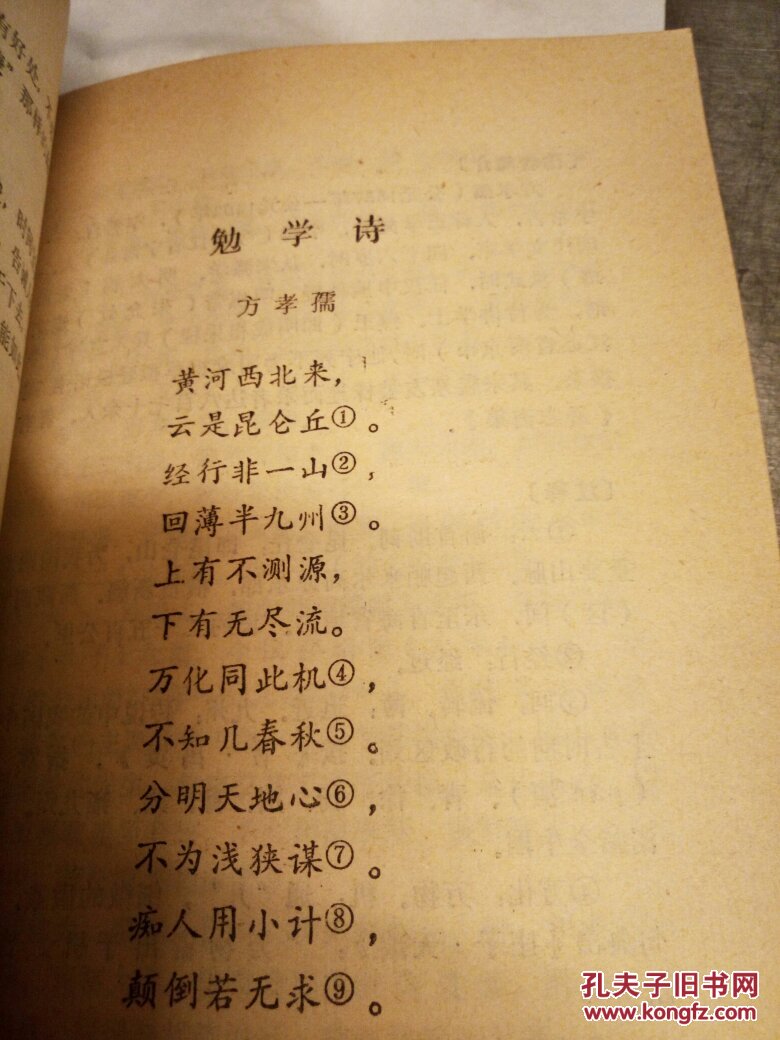 勉学诗
方孝孺
黄河西北来，
云是昆仑丘①。
经行非一山②，
回薄半九州③。
上有不测源，
下有无尽流。
万化同此机④，
不知几春秋⑤。
分明天地心⑥，
不为浅狭谋⑦。
痴人用小计⑧，
颠倒若无求⑨。
有好处，
那样
孔夫子旧书网
www.kongfz.com